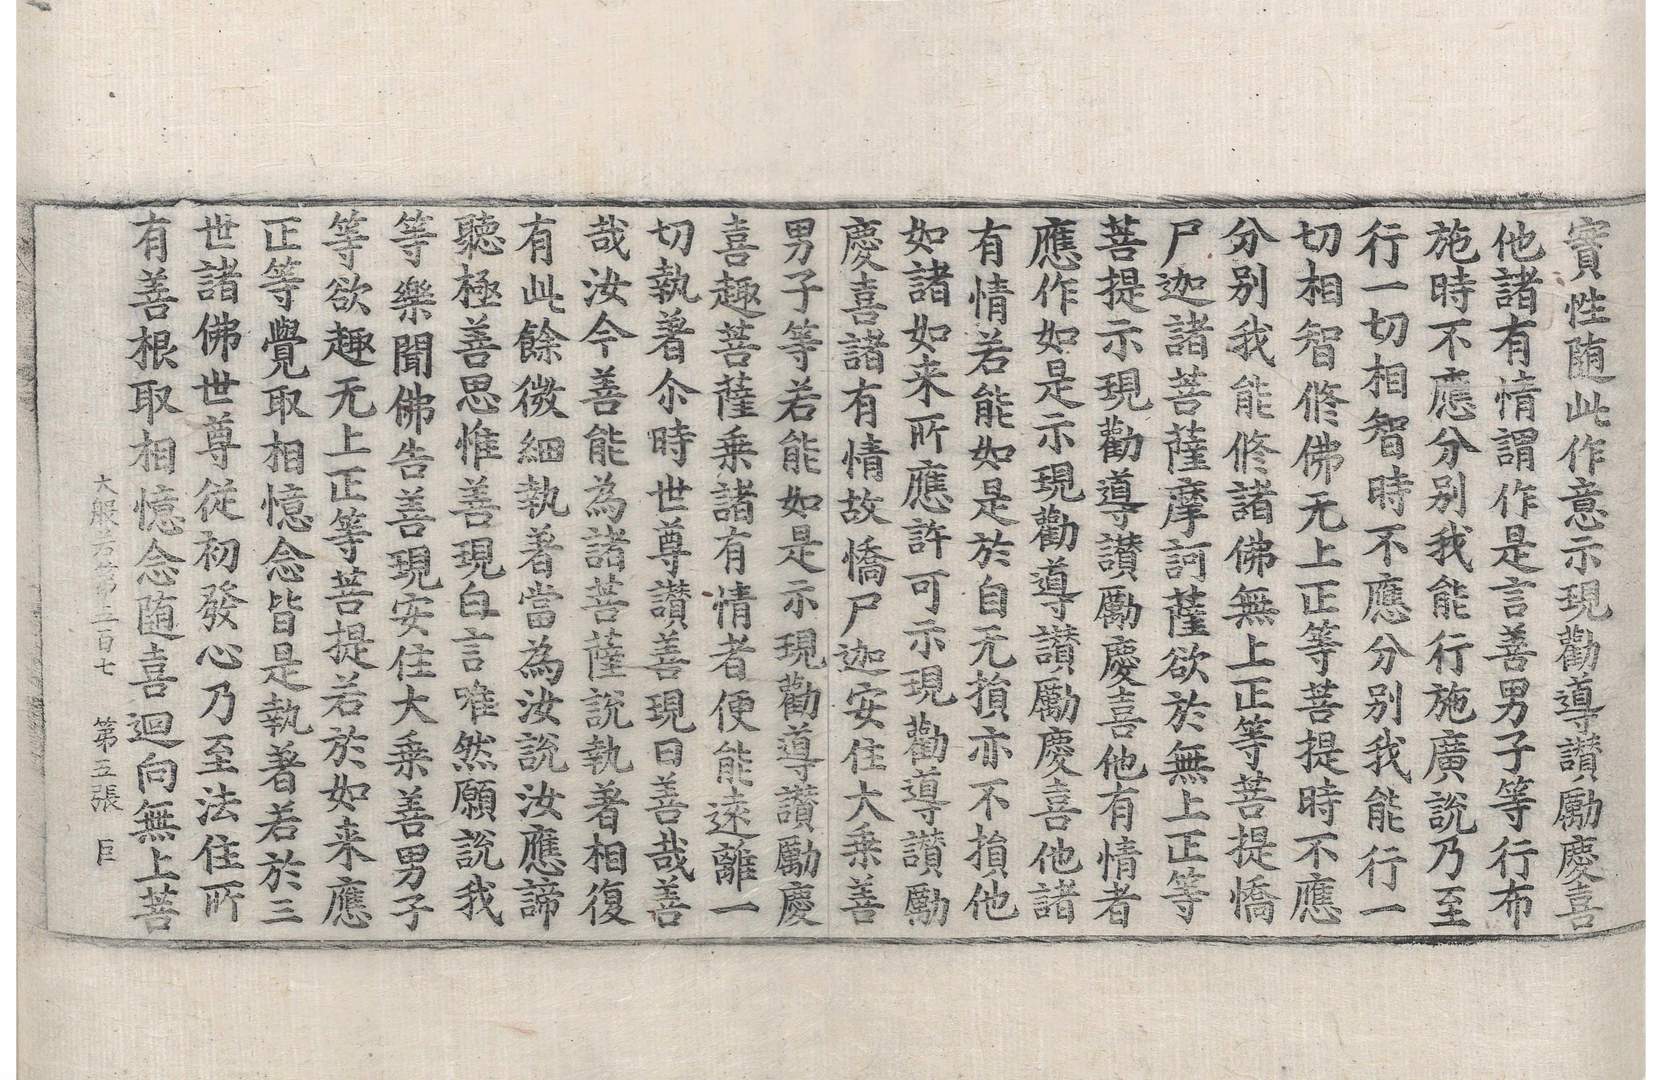 實性随此作意示現勸導讃勵慶喜
他諸有情謂作是言善男子等行布
施時不應分别我能行施廣說乃至
行一切相智時不應分别我能行一
切相智修佛无上正等菩提時不應
分别我能修諸佛無上正等菩提憍
尸迦諸菩薩摩訶薩欲於無上正等
菩提示現勸導讃勵慶喜他有情者
應作如是示現勸導讃勵慶喜他諸
有情若能如是於自无損亦不損他
如諸如来所應許可示現勸導讃勵
慶喜諸有情故憍尸迦安住大乗善
男子等若能如是示現勸導讃勵慶
喜趣菩薩乗諸有情者便能遠離一
切執著尒時世尊讃善現曰善哉善
哉汝今善能為諸菩薩說執著相復
有此餘微細執著當為汝說汝應諦
聽極善思惟善現白言唯然願說我
等樂聞佛告善現安住大乗善男子
等欲趣无上正等菩提若於如来應
正等覺取相憶念皆是執著若於三
世諸佛世尊従初發心乃至法住所
有善根取相憶念随喜迴向無上菩
大般若第三百七 第五張 巨